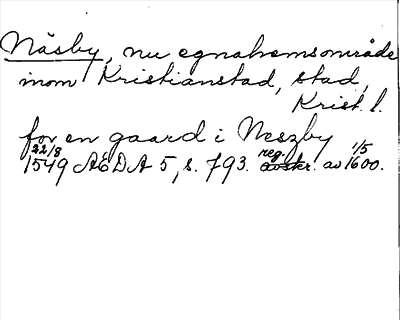 Näsby, nu egnahemsområde
inom Kristianstad, stad,
Krist. l.
for en gaard i Neszby
22/8 1549 ÆDA 5, s. 793. reg. avskr. av 1/5 1600.